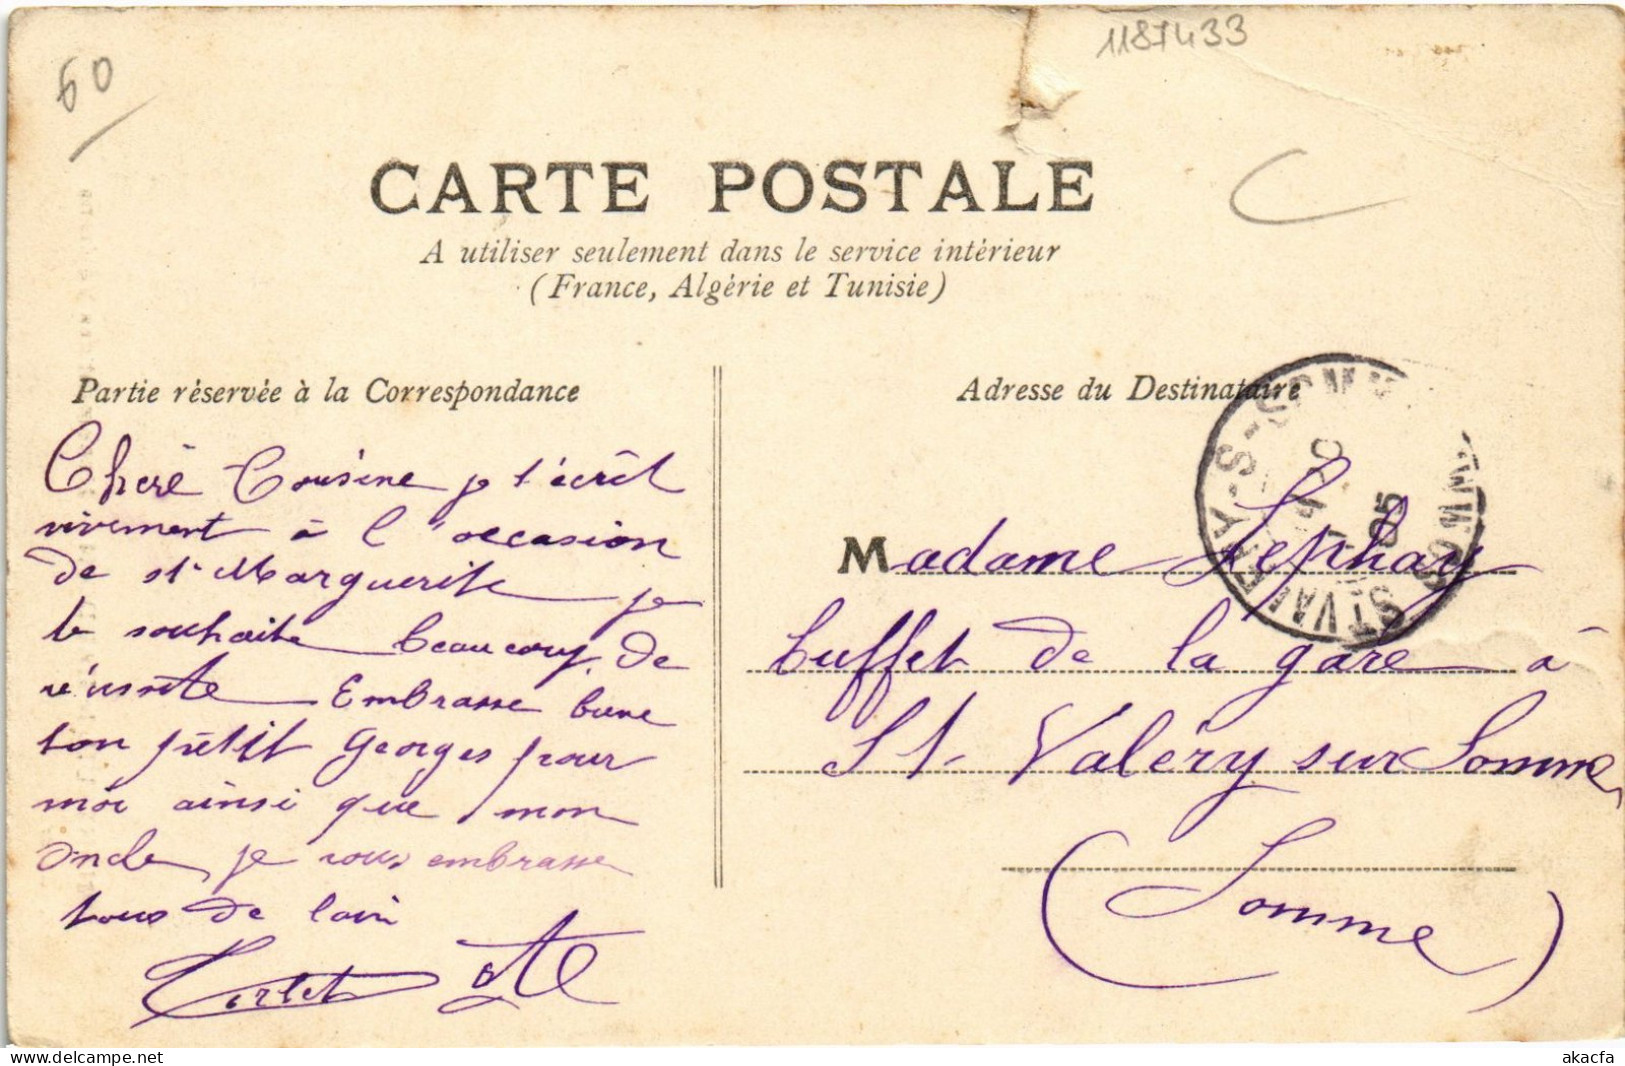 60
1187433
CARTE POSTALE
A utiliser seulement dans le service intérieur
(France, Algérie et Tunisie)
Partie réservée à la Correspondance
Adresse du Destinataire
Chère Cousine je t'écrit
vivement à l'occasion
de St Marguerite je
te souhaite beaucoup de
réussite Embrasse bien
ton petit Georges pour
moi ainsi que mon
oncle, je vous embrasse
tous de loin
ST VALERY-S-SOMME
SOMME
05
Madame Lephay
buffet de la gare à
St. Valéry sur Somme,
(Somme)
delcampe.net
akacfa